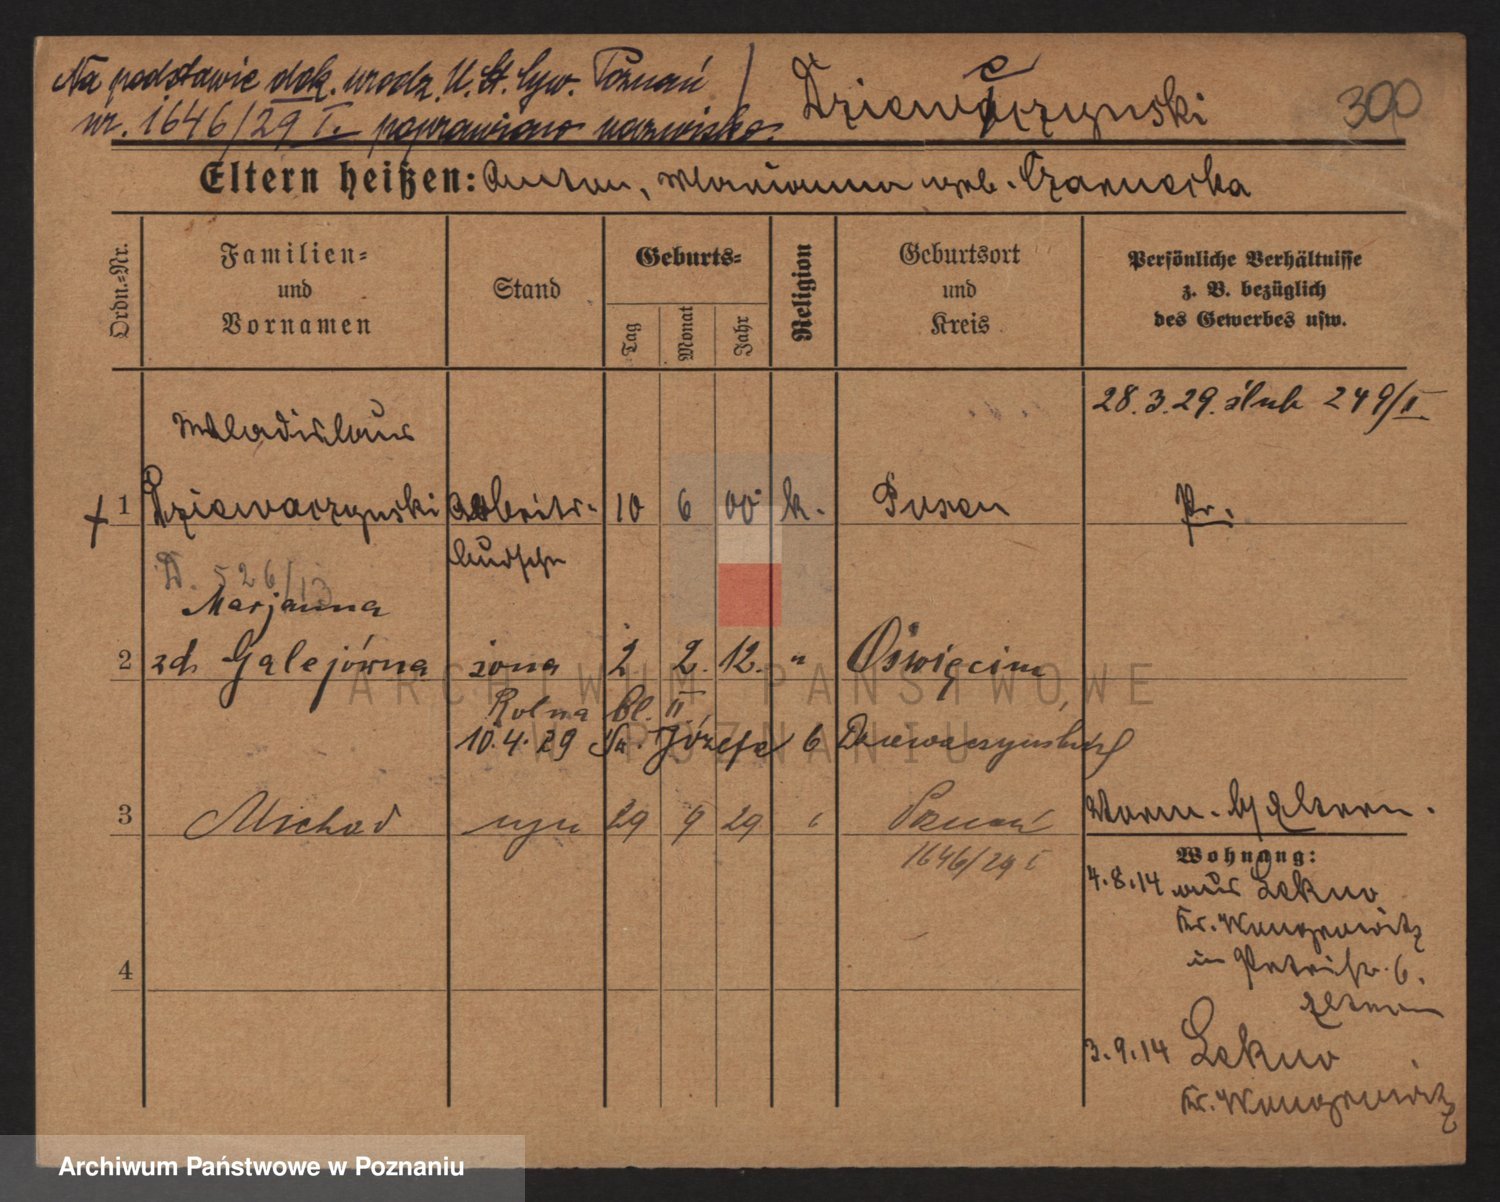 Na podstawie dok. urodz. U. St. Cyw. Poznań
nr. 1646/29 I. poprawiono nazwisko.
Dziewiczynski
e
300
Eltern heißen: Anton, Marianna geb. Czarnecka
Ordn.-Nr.
Familien-
und
Vornamen
Stand
Geburts-
Tag
Monat
Jahr
Religion
Geburtsort
und
Kreis
Persönliche Verhältnisse
z. B. bezüglich
des Gewerbes usw.
28.3.29. ślub 249/II
Wladislaus
1 Dziewaczynski Arbeits- 10 6 00 k. Posen Pr.
bursche
D. 526/13
Marjanna
2 zd. Galejówna żona 2 2. 12. " Oświęcim
Rolna bl. II
10.4.29 Józefa 6 Dziewaczynski
3 Michał syn 29 9 29 Poznań
1646/29 I
Eltern.
Wohnung:
4.8.14 aus Lekno
Kr. Wongrowitz
in Petristr. 6.
Eltern
3.9.14 Lekno
Kr. Wongrowitz
4
ARCHIWUM PAŃSTWOWE
W POZNANIU
Archiwum Państwowe w Poznaniu